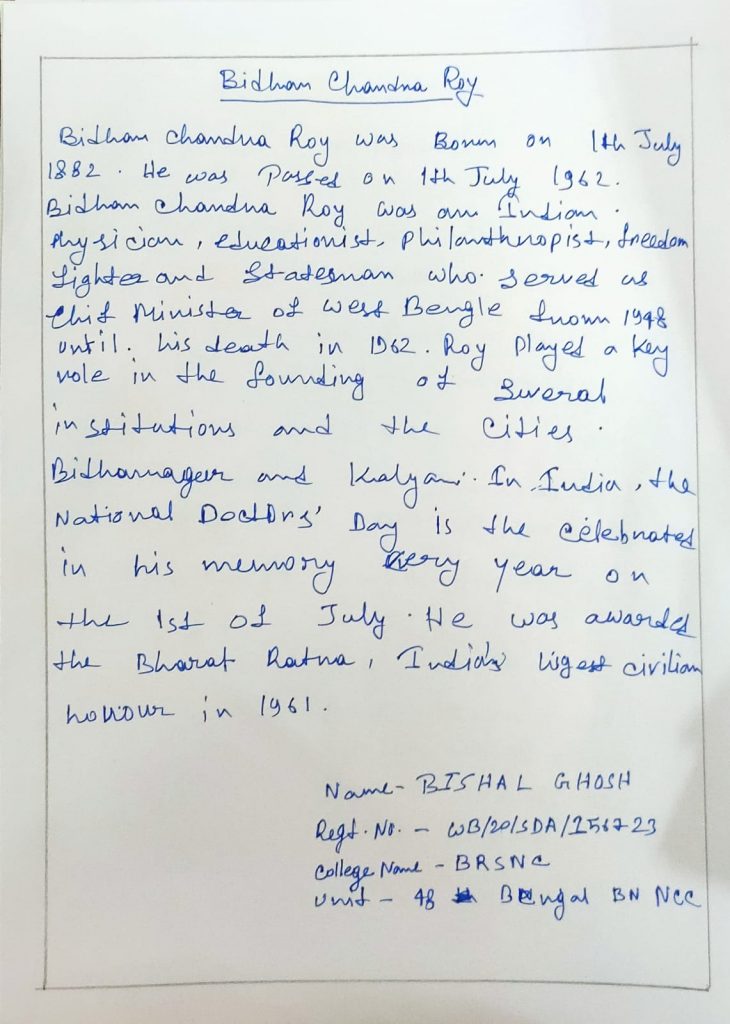 Bidhan Chandra Roy
Bidhan Chandra Roy was Born on 1th July
1882. He was Passed on 1th July 1962.
Bidhan Chandra Roy was an Indian.
Physician, educationist, Philanthropist, freedom
fighter and Statesman who. served as
Chif Minister of West Bengle from 1948
until. his death in 1962. Roy Played a Key
role in the founding of Several
institutions and the Cities.
Bidhannager and Kalyani. In India, the
National Doctors' Day is the celebrated
in his memory every year on
the 1st of July. He was awarded
the Bharat Ratna, India's higest civilian
honour in 1961.
Name- BISHAL GHOSH
Regt. No. - WB/20/SDA/156723
College Name - BRSNC
Unit - 48 Bengal BN NCC